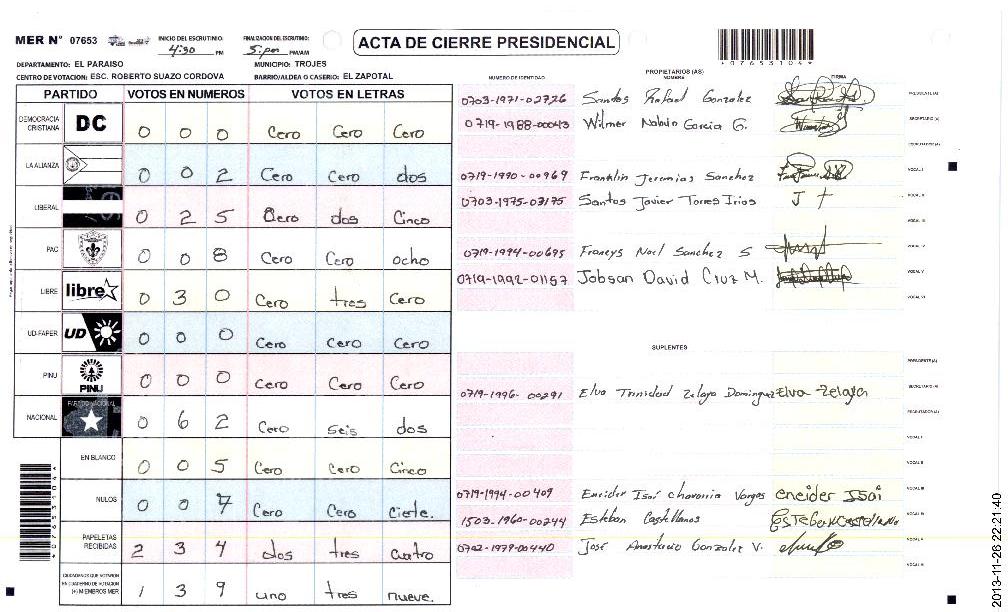 MER N° 07653
INICIO DEL ESCRUTINIO: 4:30 PM
FINALIZACION DEL ESCRUTINIO: 5: PM/AM
ACTA DE CIERRE PRESIDENCIAL
4076531044
DEPARTAMENTO: EL PARAISO
MUNICIPIO: TROJES
CENTRO DE VOTACION: ESC. ROBERTO SUAZO CORDOVA
BARRIO/ALDEA O CASERIO: EL ZAPOTAL
PARTIDO VOTOS EN NUMEROS VOTOS EN LETRAS
DEMOCRACIA CRISTIANA DC 0 0 0 Cero Cero Cero
LA ALIANZA 0 0 2 Cero Cero dos
LIBERAL 0 2 5 Cero dos Cinco
PAC 0 0 8 Cero Cero ocho
LIBRE libre 0 3 0 Cero tres Cero
UD-FAPER UD 0 0 0 Cero Cero Cero
PINU PINU 0 0 0 Cero Cero Cero
NACIONAL PARTIDO NACIONAL 0 6 2 Cero seis dos
EN BLANCO 0 0 5 Cero Cero Cinco
NULOS 0 0 7 Cero Cero Ciete.
PAPELETAS RECIBIDAS 2 3 4 dos tres cuatro
CIUDADANOS QUE VOTARON EN CUADERNO DE VOTACION (+) MIEMBROS MER 1 3 9 uno tres nueve.
4076531044
NUMERO DE IDENTIDAD
PROPIETARIOS (AS)
NOMBRE
FIRMA
0703-1971-02726 Santos Rafael Gonzalez PRESIDENTE (A)
0719-1988-00043 Wilmer Nahún Garcia G. SECRETARIO (A)
ESCRUTADOR (A)
0719-1990-00969 Franklin Jeremias Sanchez VOCAL I
0703-1975-03175 Santos Javier Torres Irias J T VOCAL II
VOCAL III
0719-1994-00695 Francys Noel Sanchez S VOCAL IV
0719-1992-01157 Jobsan David Cruz M. VOCAL V
VOCAL VI
SUPLENTES
PRESIDENTE (A)
0719-1996-00291 Elva Trinidad Zelaya Dominguez Elva Zelaya SECRETARIO (A)
ESCRUTADOR (A)
VOCAL I
VOCAL II
0719-1994-00409 Eneider Isaí chavarria Vargas eneider Isaí VOCAL III
1503-1960-00244 Esteban Castellanos Esteban Castellano VOCAL IV
0702-1979-00440 José Anastacio Gonzalez V. VOCAL V
VOCAL VI
2013-11-26 22:21:40